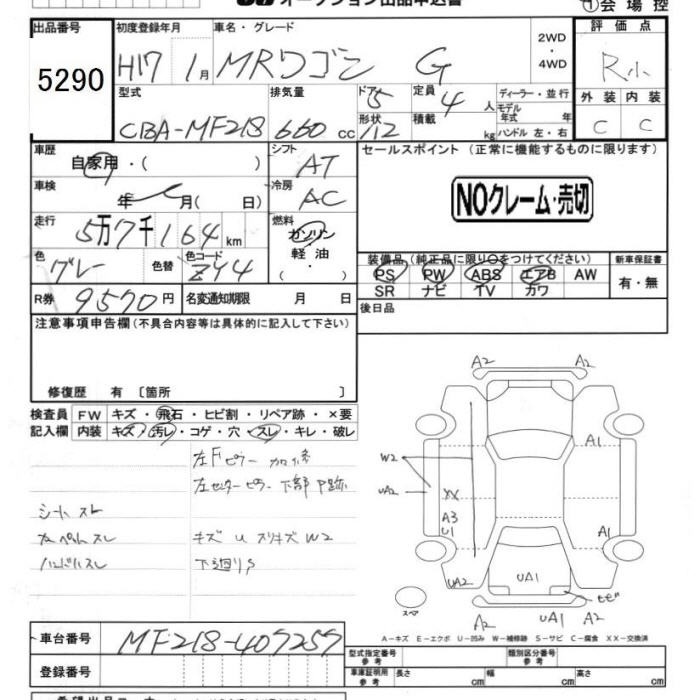 オークション出品申込書
①会場控
出品番号
5290
初度登録年月
H17 1月
車名・グレード
MRワゴン G
2WD
・
4WD
評価点
R小
外装 内装
C C
型式
CBA-MF21S
排気量
660 cc
ドア 5
形状 /12
定員 4 人
積載 kg
ディーラー・並行
モデル年式 年
ハンドル 左・右
車歴
自家用・( )
シフト
AT
車検
年 月( 日)
冷房
AC
走行
5万7千164 km
燃料
ガソリン
軽油
・
色
グレー
色替
色コード
ZY4
R券 9570円
名変通知期限 月 日
セールスポイント(正常に機能するものに限ります)
NOクレーム・売切
装備品(純正品に限り○をつけてください)
PS PW ABS エアB AW
SR ナビ TV カワ
新車保証書
有・無
後日品
注意事項申告欄(不具合内容等は具体的に記入して下さい)
修復歴 有〔箇所 〕
検査員記入欄
FW キズ・飛石・ヒビ割・リペア跡・×要
内装 キズ・汚レ・コゲ・穴・スレ・キレ・破レ
左Fピラー 加修
左センターピラー 下部 P跡
シートスレ
カーペットスレ
ハンドルスレ
キズ U スリキズ W2
下廻りS
A2 A2
A1
W2
UA2
XX
A3
U1
A1
UA2
UA1
ヒビ
スペア
A2 UA1 A2
A-キズ E-エクボ U-凹み W-補修跡 S-サビ C-腐食 XX-交換済
車台番号 MF21S-409259
登録番号
型式指定番号 参考
類別区分番号 参考
車庫証明用 参考
長さ cm 幅 cm 高さ cm